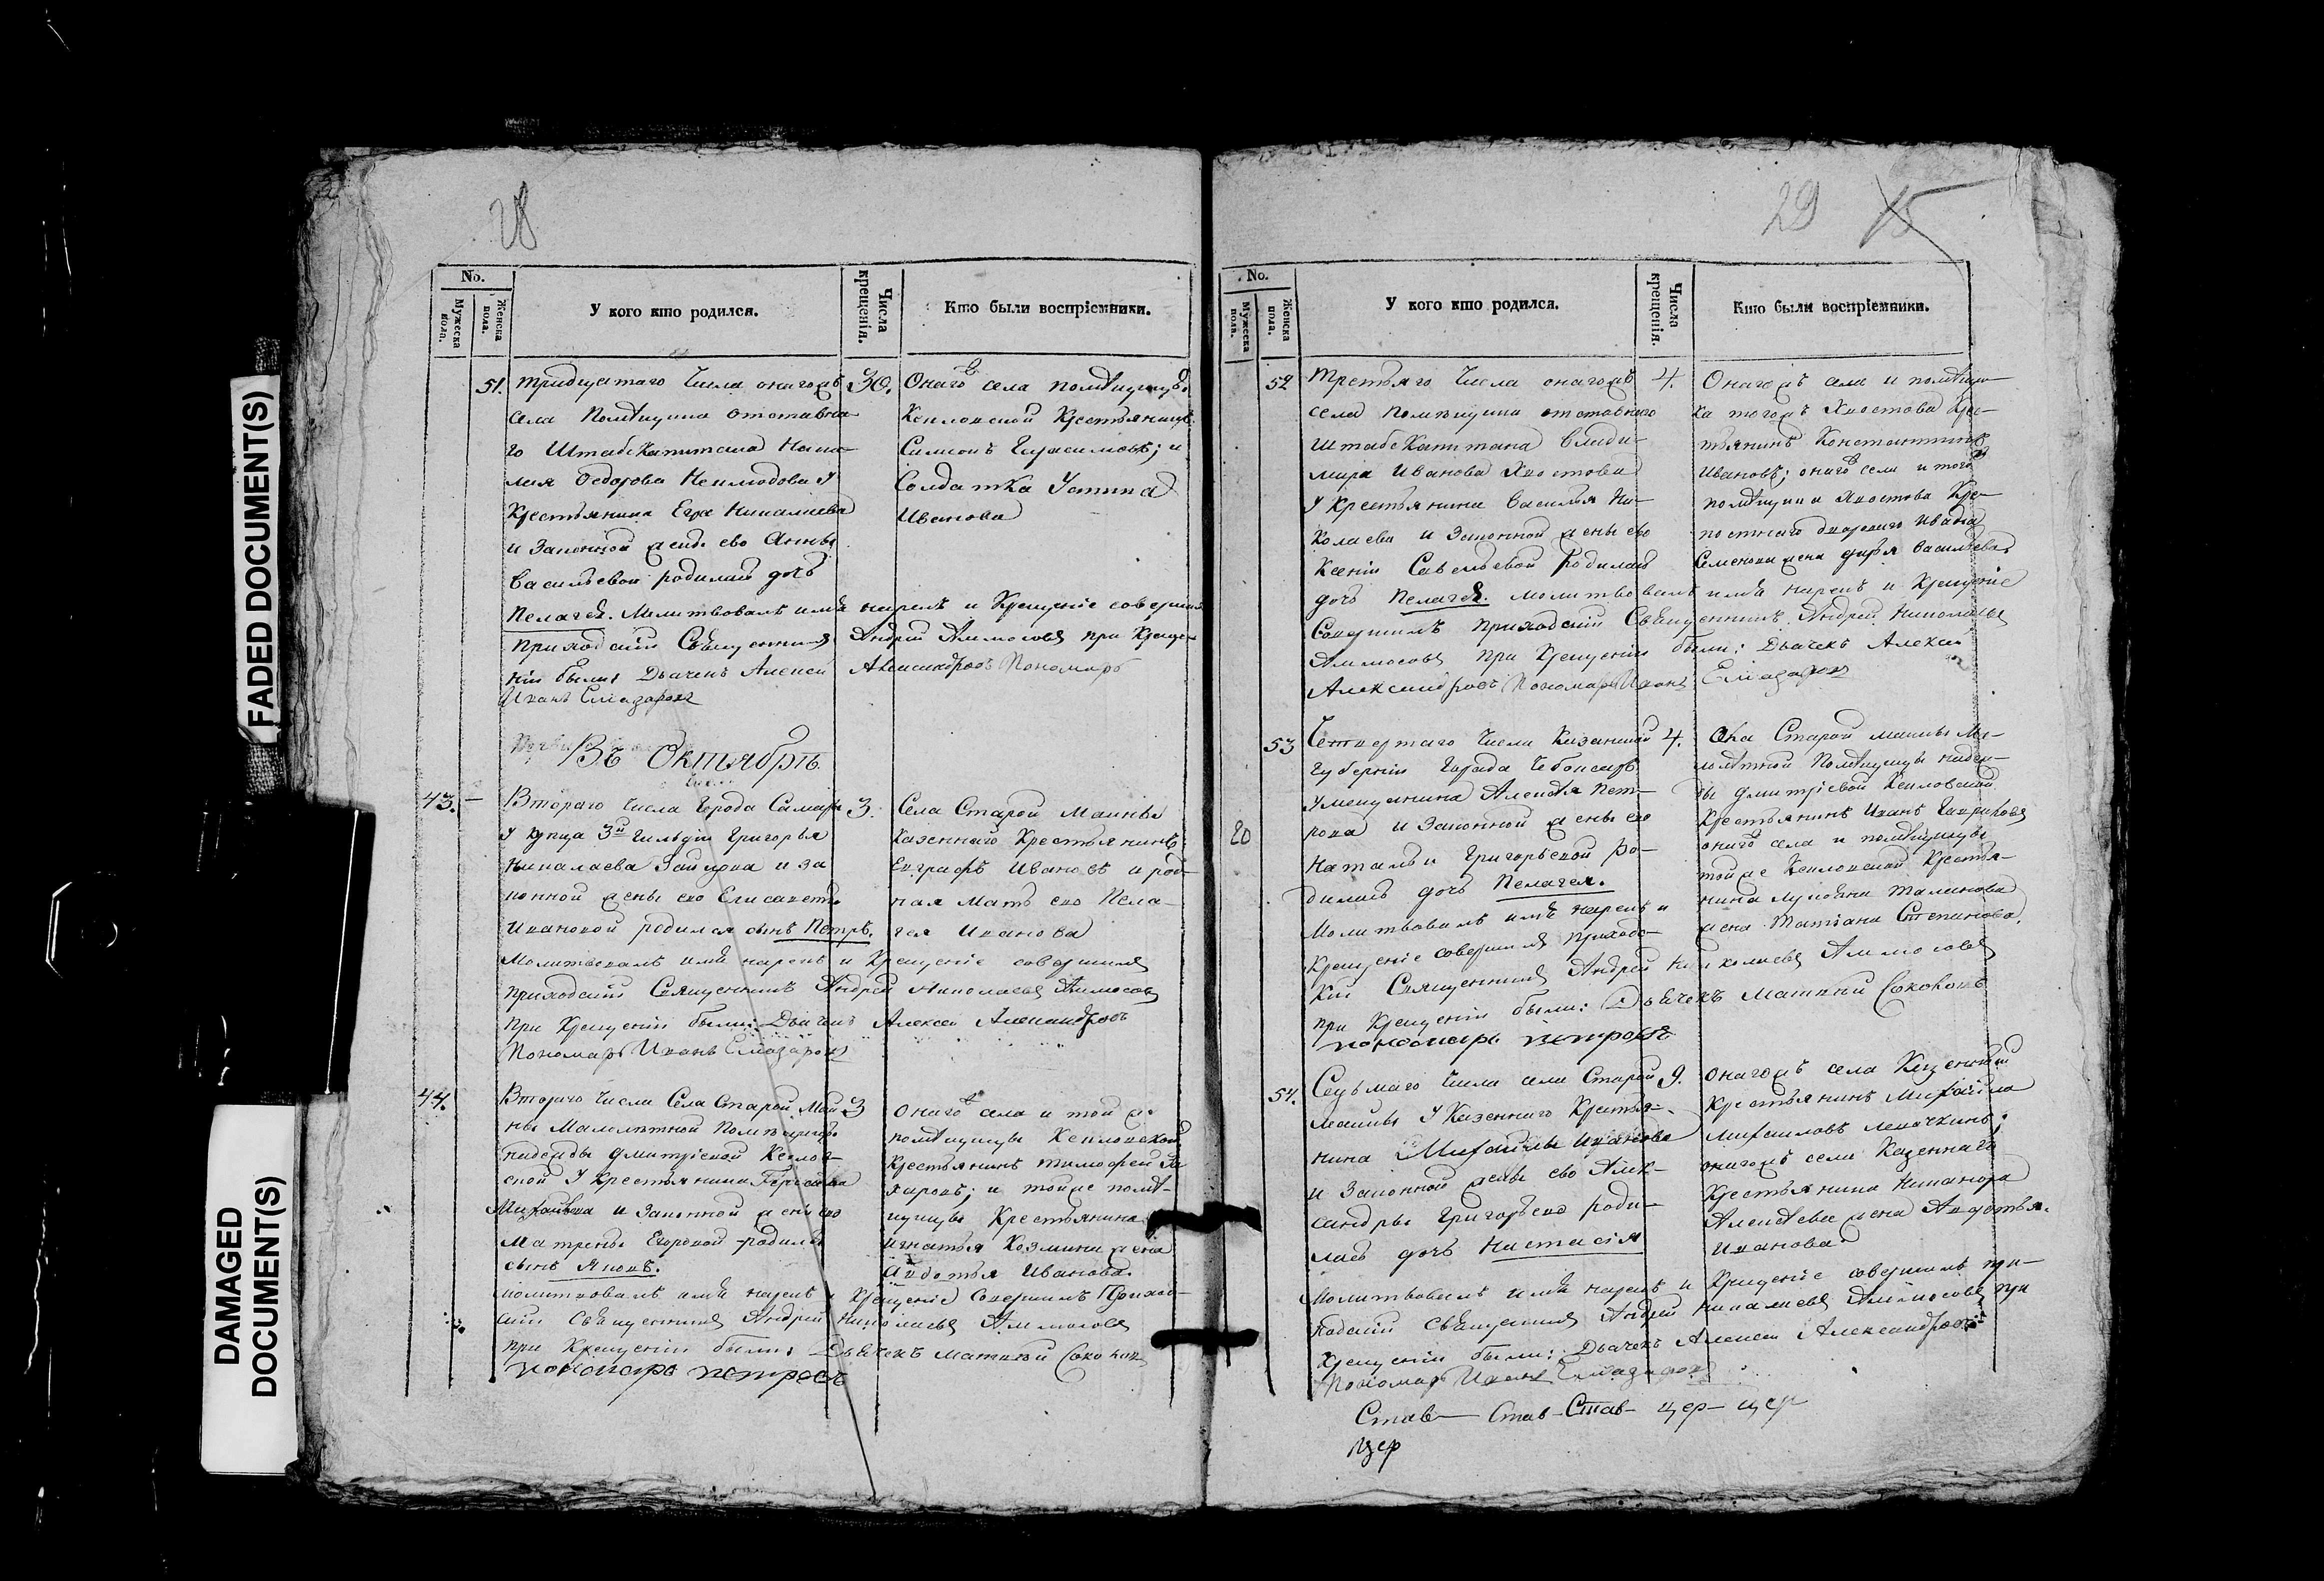 FADED DOCUMENT(S)
DAMAGED
DOCUMENT(S)
28
No.
Мужеска пола.
Женска пола.
У кого кто родился.
Числа крещенія.
Кто были воспріемники.
51.
Тридцатаго числа онагожъ
села Помѣщика отставна
го Штабскапитана
Федорова У
Крестьянина Егра Николаева
и Законной жены ево Анны
Васильевой родилась дочь
Пелагея. Молитвовалъ имя нарекъ и Крещеніе совершилъ
приходскій Священникъ Андрей Алмосовъ при Креще-
ніи были: Дьячекъ Алексей Александровъ Пономарь
Иванъ Елиазаровъ
30.
Онаго села помѣщицы
Крестьянинъ
Симионъ Герасимовъ; и
Солдатка Устина
Иванова
Въ Октябрѣ
43.
Втораго числа Города Самары
У купца 3й гильдіи Григорья
Николаева и за
конной жены ево Елисаветы
Ивановой родился сынъ Петръ.
Молитвовалъ имя нарекъ и Крещеніе совершилъ
приходскій Священникъ Андрей Николаевъ Алмосовъ
при Крещеніи были: Дьячекъ Алексей Александровъ
Пономарь Иванъ Елиазаровъ
3.
Села Старой Маины
Казеннаго Крестьянинъ
Евграфъ Ивановъ и род-
ная мать ево Пела-
гея Иванова
44.
Втораго числа Села Старой Маи
ны Малолѣтной Помѣщицы
Надежды Дмитріевой
У Крестьянина
и Законной жены ево
Матрены Егоровой родился
сынъ Яковъ.
Молитвовалъ имя нарекъ и Крещеніе Совершилъ Приход-
скій Священникъ Андрей Николаевъ Алмосовъ
при Крещеніи были: Дьячекъ Матвей Соколовъ
пономарь петровъ
3
Онаго села и той ж
помѣщицы
Крестьянинъ Тимофей За
харовъ; и тойже помѣ-
щицы Крестьянина
Игнатья Козмина жена
Авдотья Иванова.
29
15
No.
Мужеска пола.
Женска пола.
У кого кто родился.
Числа крещенія.
Кто были воспріемники.
52
Третьяго числа онагожъ
села помѣщика отставного
штабскапитана Влади-
мира Иванова Хвостова
У Крестьянина Василья Ни-
колаева и Законной жены ево
Ксеніи Савельевой Родилась
дочь Пелагея. Молитвовалъ имя нарекъ и Крещеніе
Совершилъ приходскій Священникъ Андрей Николаевъ
Алмосовъ при Крещеніи были: Дьячекъ Алексей
Александровъ Пономарь Иванъ Елиазаровъ
4.
Онагожъ села и помѣщи-
ка тогожъ Хвостова Кре-
стьянинъ Константинъ
Ивановъ; онаго села и того
помѣщика Хвостова Кре-
постнаго двороваго Ивана
Семенова жена Дарья Васильева
53
20
Четвертаго числа Казанской
Губерніи Города Чебоксаръ
У мещанина Алексѣя Пет-
рова и Законной жены ево
Натальи Григорьевой Ро-
дилась дочь Пелагея.
Молитвовалъ имя нарекъ и
Крещеніе совершилъ приходс-
кій Священникъ Андрей Николаевъ Алмосовъ
при Крещеніи были: Дьячекъ Матвей Соколовъ
пономарь петровъ
4.
Старой маины Ма-
лолѣтной Помѣщицы Надеж-
ды Дмитріевой
Крестьянинъ Иванъ Гавриловъ
онаго села и помѣщицы
тойже Крестья-
нина
жена Татіана Степанова.
54.
Седьмаго числа села Старой
маины У Казеннаго Крестья-
нина Михайлы Иванова
и Законной жены ево Алек-
сандры Григорьево роди-
лась дочь Настасія
Молитвовалъ имя нарекъ и Крещеніе совершилъ при-
ходскій Священникъ Андрей Николаевъ Алмосовъ при
Крещеніи были: Дьячекъ Алексей Александровъ
Пономарь Иванъ Елиазаровъ
9.
Онагожъ села Казенный
Крестьянинъ Михайла
Михаиловъ
онагожъ села Казеннаго
Крестьянина Никанора
Алексѣева жена Авдотья
Иванова
Став— Став- Став- цер- цер
цер